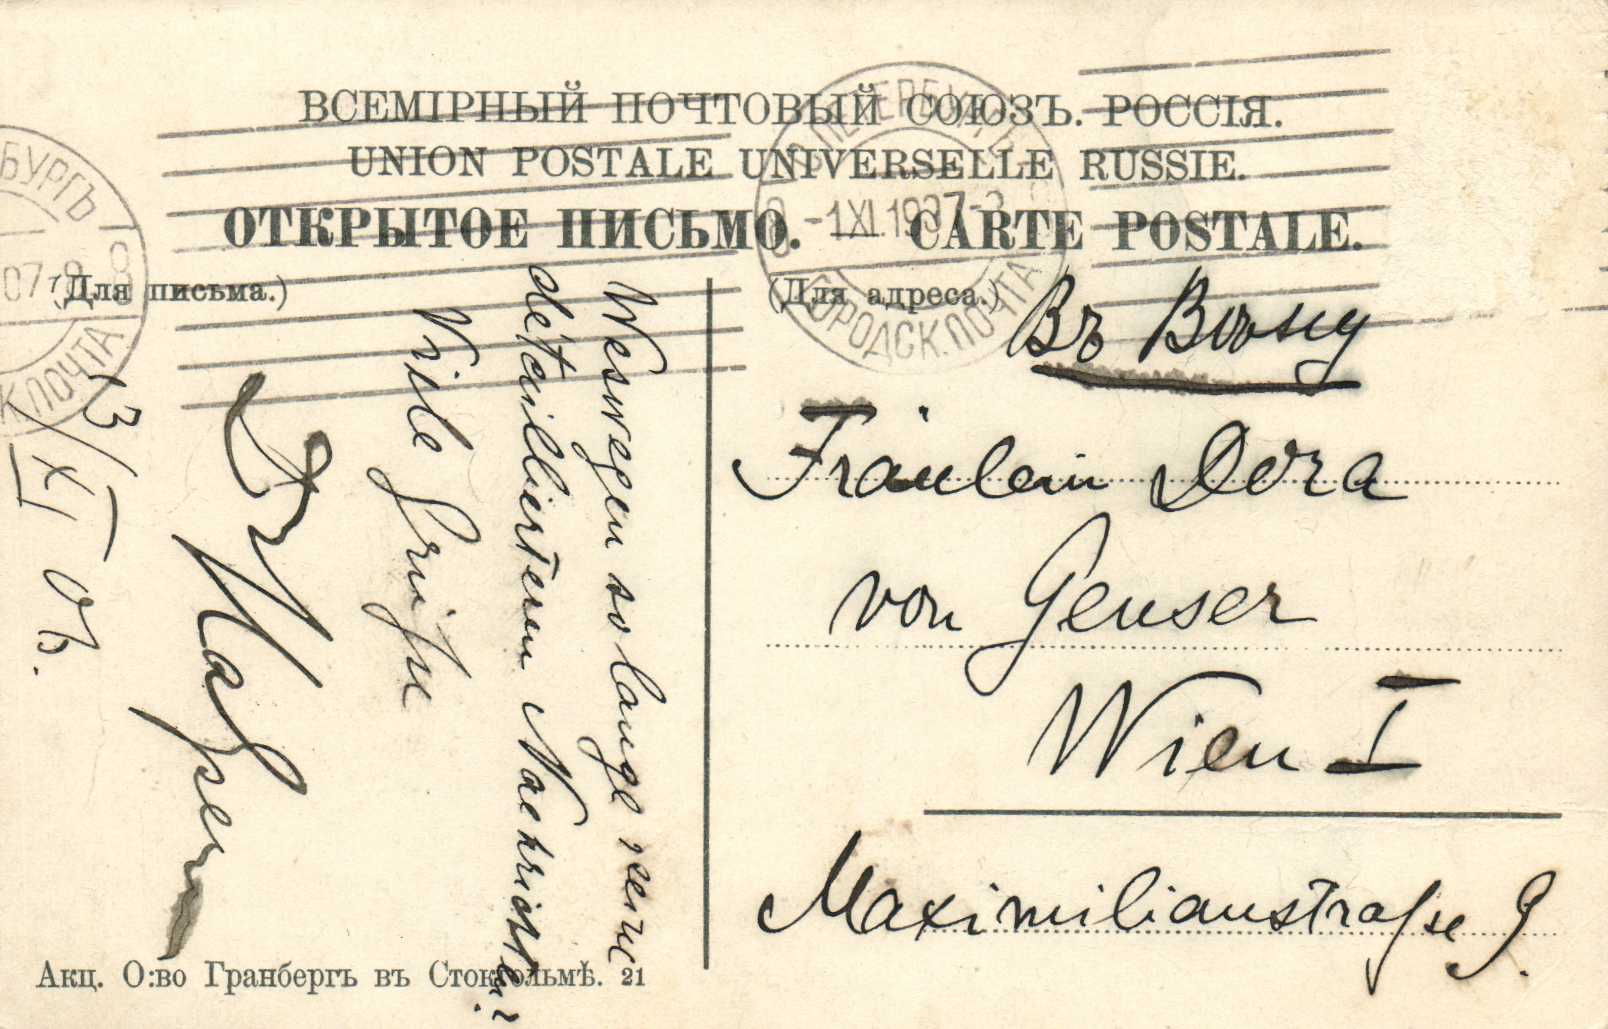 ВСЕМІРНЫЙ ПОЧТОВЫЙ СОЮЗЪ. РОССІЯ.
UNION POSTALE UNIVERSELLE RUSSIE.
ОТКРЫТОЕ ПИСЬМО. CARTE POSTALE.
(Для письма.)
(Для адреса.)
-1XI.1907-
ГОРОДСК.ПОЧТА
БУРГЪ
07-8
8
К.ПОЧТА
Weswegen so lange keine
détaillierteren Nachrichten?
Viele Grüße
Dr
13/XI 07.
Въ Вѣну
Fräulein Dora
von Genser
Wien I
Maximilianstraße 9.
Акц. О:во Гранбергъ въ Стокгольмѣ. 21